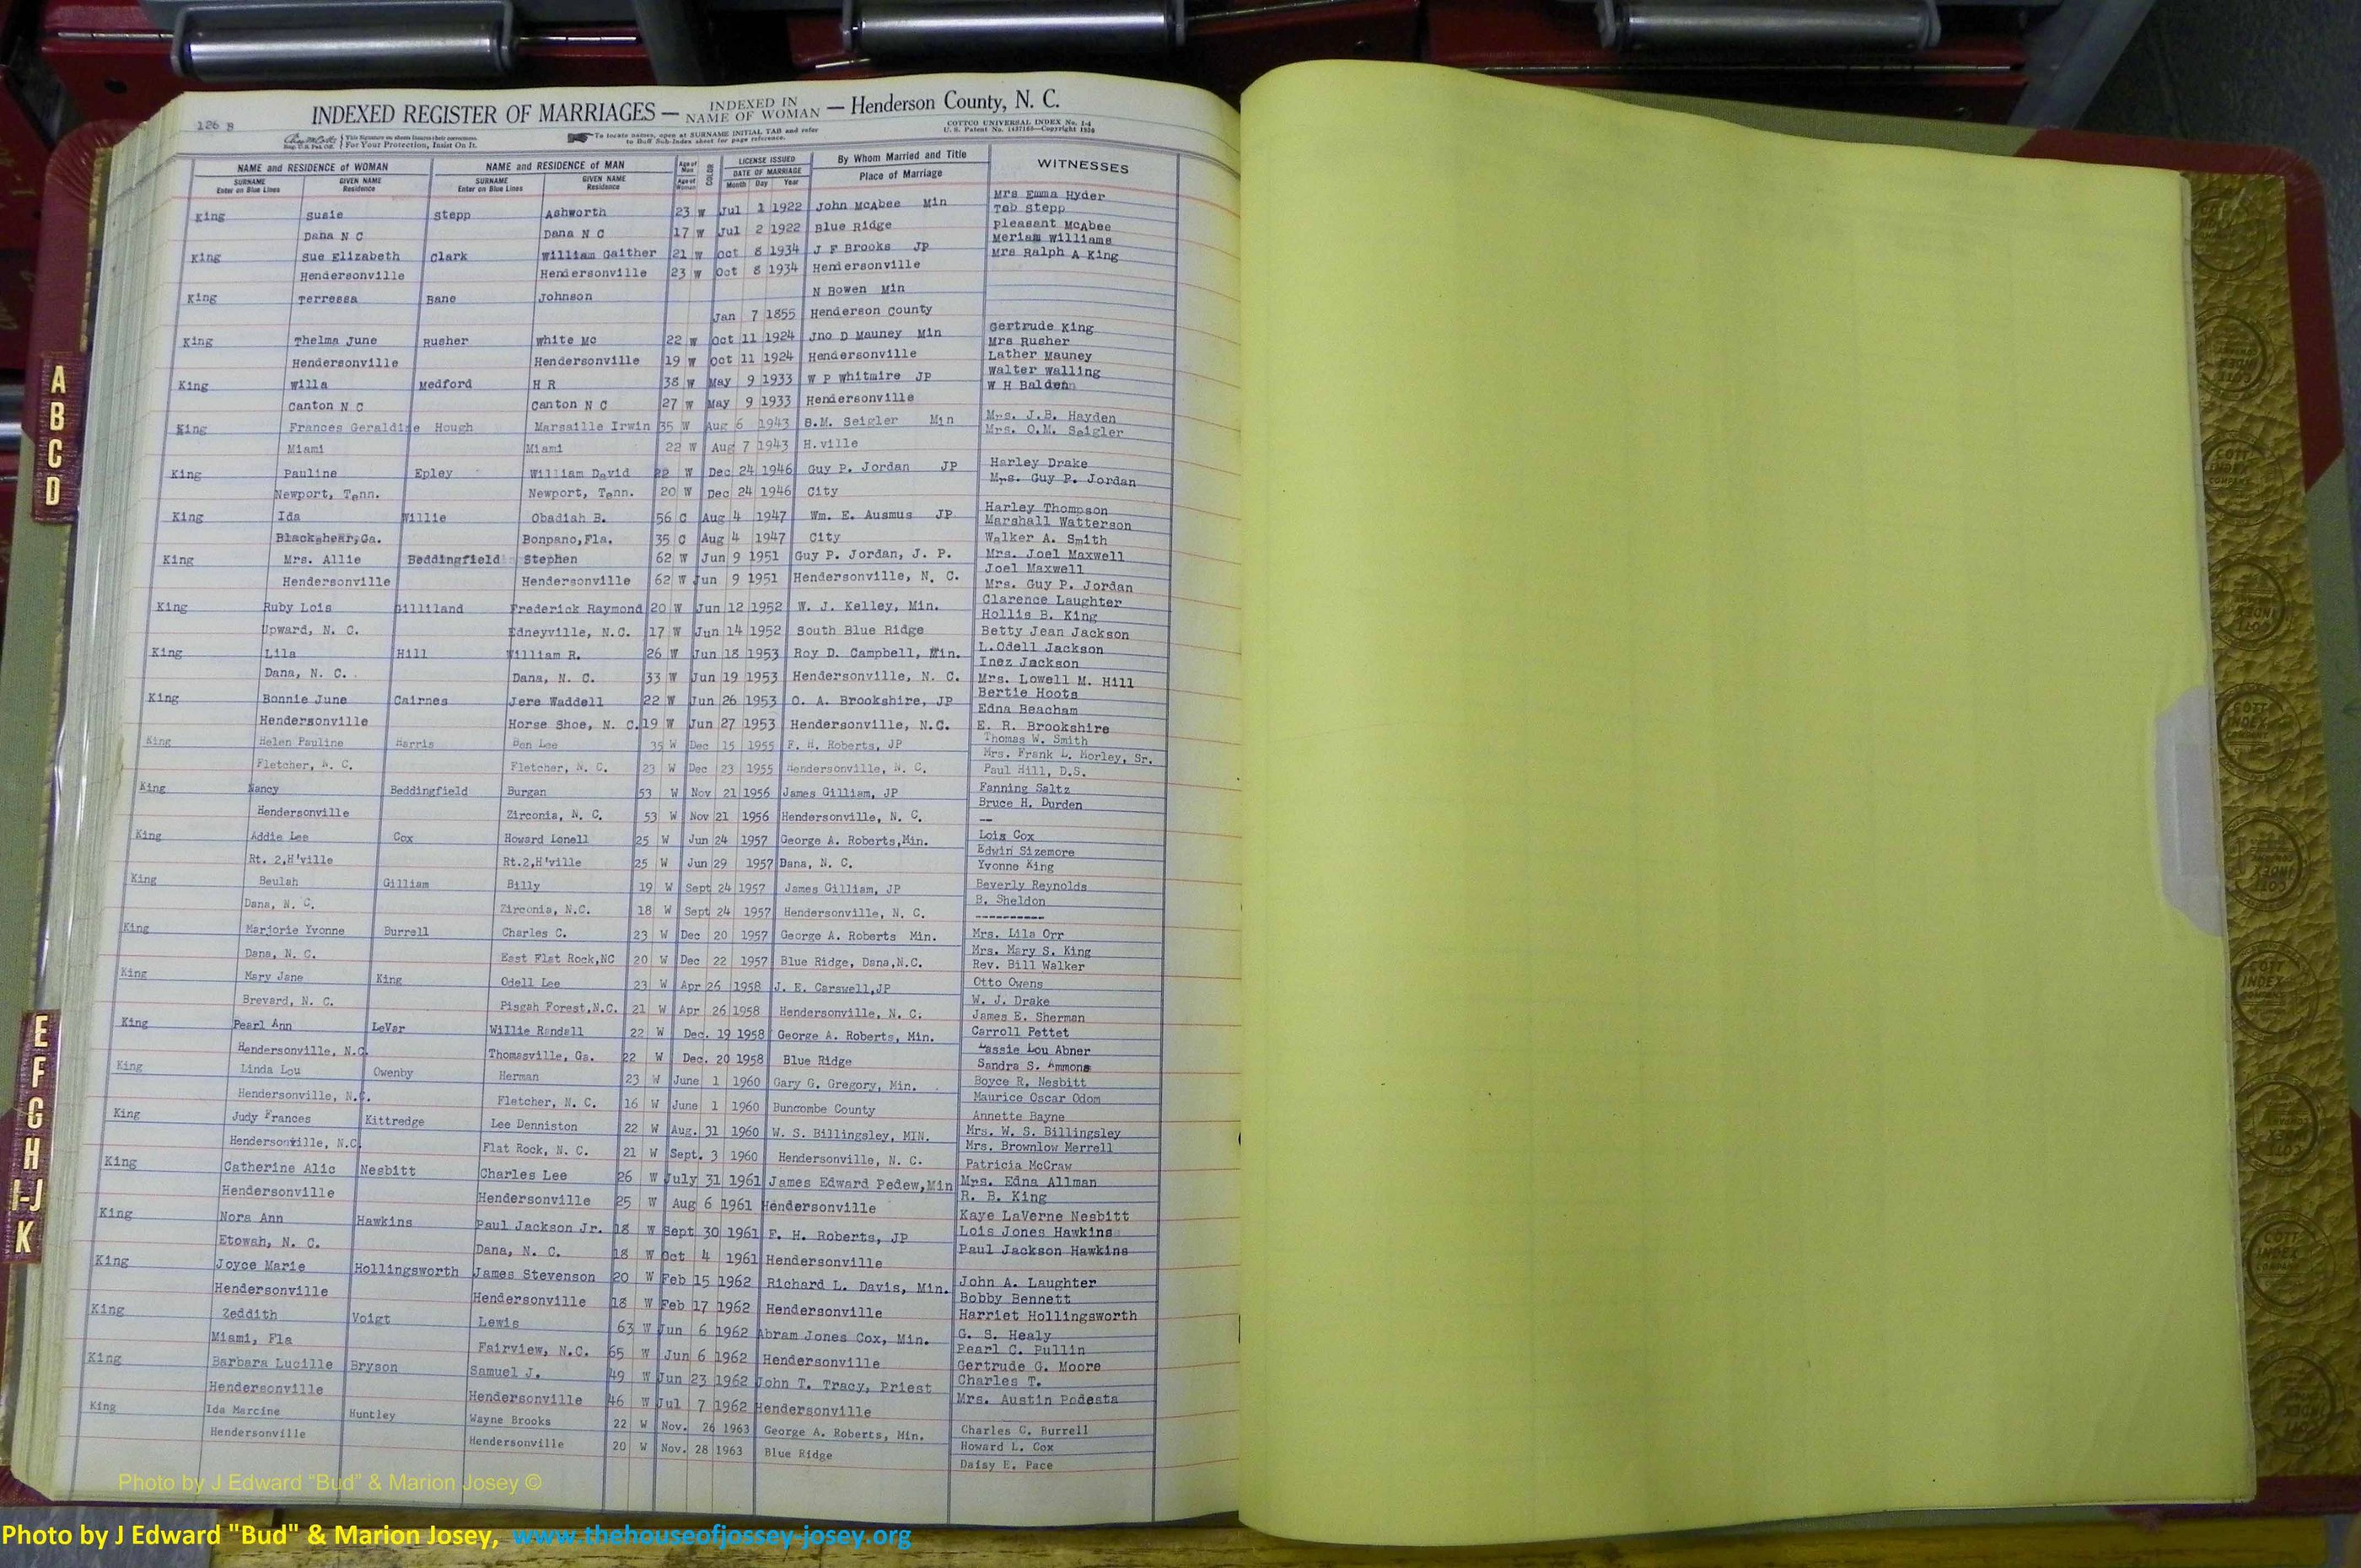 126 B
INDEXED REGISTER OF MARRIAGES — INDEXED IN NAME OF WOMAN — Henderson County, N. C.
This Signature on sheets Insures their correctness. For Your Protection, Insist On It.
To locate names, open at SURNAME INITIAL TAB and refer to Buff Sub-Index sheet for page reference.
COTTCO UNIVERSAL INDEX No. 1-4
U. S. Patent No. 1437165—Copyright 1920
NAME and RESIDENCE of WOMAN NAME and RESIDENCE of MAN Age of Man COLOR LICENSE ISSUED By Whom Married and Title WITNESSES
SURNAME Enter on Blue Lines GIVEN NAME Residence SURNAME Enter on Blue Lines GIVEN NAME Residence Age of Woman DATE OF MARRIAGE Month Day Year Place of Marriage
Mrs Emma Hyder
King Susie Stepp Ashworth 23 W Jul 1 1922 John McAbee Min Tab Stepp
Dana N C Dana N C 17 W Jul 2 1922 Blue Ridge Pleasant McAbee
Meriam Williams
King Sue Elizabeth Clark William Gaither 21 W Oct 8 1934 J F Brooks JP Mrs Ralph A King
Hendersonville Hendersonville 23 W Oct 8 1934 Hendersonville
King Terressa Bane Johnson N Bowen Min
Jan 7 1855 Henderson County
Gertrude King
King Thelma June Rusher White Mc 22 W Oct 11 1924 Jno D Mauney Min Mrs Rusher
Hendersonville Hendersonville 19 W Oct 11 1924 Hendersonville Lather Mauney
Walter Walling
King Willa Medford H R 38 W May 9 1933 W P Whitmire JP W H Balden
Canton N C Canton N C 27 W May 9 1933 Hendersonville
Mrs. J.B. Hayden
King Frances Geraldine Hough Marsaille Irwin 35 W Aug 6 1943 B.M. Seigler Min Mrs. O.M. Seigler
Miami Miami 22 W Aug 7 1943 H.ville
Harley Drake
King Pauline Epley William David 22 W Dec 24 1946 Guy P. Jordan JP Mrs. Guy P. Jordan
Newport, Tenn. Newport, Tenn. 20 W Dec 24 1946 City
Harley Thompson
King Ida Willie Obadiah B. 56 C Aug 4 1947 Wm. E. Ausmus JP Marshall Watterson
Blackshear,Ga. Bonpano,Fla. 35 C Aug 4 1947 City Walker A. Smith
King Mrs. Allie Beddingfield Stephen 62 W Jun 9 1951 Guy P. Jordan, J. P. Mrs. Joel Maxwell
Joel Maxwell
Hendersonville Hendersonville 62 W Jun 9 1951 Hendersonville, N. C. Mrs. Guy P. Jordan
Clarence Laughter
King Ruby Lois Gilliland Frederick Raymond 20 W Jun 12 1952 W. J. Kelley, Min. Hollis B. King
Upward, N. C. Edneyville, N.C. 17 W Jun 14 1952 South Blue Ridge Betty Jean Jackson
L.Odell Jackson
King Lila Hill William R. 26 W Jun 18 1953 Roy D. Campbell, Min. Inez Jackson
Dana, N. C. Dana, N. C. 33 W Jun 19 1953 Hendersonville, N. C. Mrs. Lowell M. Hill
Bertie Hoots
King Bonnie June Cairnes Jere Waddell 22 W Jun 26 1953 O. A. Brookshire, JP Edna Beacham
Hendersonville Horse Shoe, N. C. 19 W Jun 27 1953 Hendersonville, N.C. E. R. Brookshire
Thomas W. Smith
King Helen Pauline Harris Ben Lee 35 W Dec 15 1955 F. H. Roberts, JP Mrs. Frank L. Morley, Sr.
Fletcher, N. C. Fletcher, N. C. 23 W Dec 23 1955 Hendersonville, N. C. Paul Hill, D.S.
Fanning Saltz
King Nancy Beddingfield Burgan 53 W Nov 21 1956 James Gilliam, JP Bruce H. Durden
Hendersonville Zirconia, N. C. 53 W Nov 21 1956 Hendersonville, N. C. --
Lois Cox
King Addie Lee Cox Howard Lonell 25 W Jun 24 1957 George A. Roberts,Min. Edwin Sizemore
Rt. 2,H'ville Rt.2,H'ville 25 W Jun 29 1957 Dana, N. C. Yvonne King
King Beulah Gilliam Billy 19 W Sept 24 1957 James Gilliam, JP Beverly Reynolds
B. Sheldon
Dana, N. C. Zirconia, N.C. 18 W Sept 24 1957 Hendersonville, N. C. ----------
King Marjorie Yvonne Burrell Charles C. 23 W Dec 20 1957 George A. Roberts Min. Mrs. Lila Orr
Mrs. Mary S. King
Dana, N. C. East Flat Rock,NC 20 W Dec 22 1957 Blue Ridge, Dana,N.C. Rev. Bill Walker
King Mary Jane King Odell Lee 23 W Apr 26 1958 J. E. Carswell,JP Otto Owens
W. J. Drake
Brevard, N. C. Pisgah Forest,N.C. 21 W Apr 26 1958 Hendersonville, N. C. James E. Sherman
King Pearl Ann LeVar Willie Randall 22 W Dec. 19 1958 George A. Roberts, Min. Carroll Pettet
Lassie Lou Abner
Hendersonville, N.C. Thomasville, Ga. 22 W Dec. 20 1958 Blue Ridge Sandra S. Ammons
King Linda Lou Owenby Herman 23 W June 1 1960 Gary G. Gregory, Min. Boyce R. Nesbitt
Maurice Oscar Odom
Hendersonville, N.C. Fletcher, N. C. 16 W June 1 1960 Buncombe County Annette Bayne
King Judy Frances Kittredge Lee Denniston 22 W Aug. 31 1960 W. S. Billingsley, MIN. Mrs. W. S. Billingsley
Mrs. Brownlow Merrell
Hendersonville, N.C. Flat Rock, N. C. 21 W Sept. 3 1960 Hendersonville, N. C. Patricia McCraw
King Catherine Alic Nesbitt Charles Lee 26 W July 31 1961 James Edward Pedew,Min Mrs. Edna Allman
R. B. King
Hendersonville Hendersonville 25 W Aug 6 1961 Hendersonville Kaye LaVerne Nesbitt
King Nora Ann Hawkins Paul Jackson Jr. 18 W Sept 30 1961 F. H. Roberts, JP Lois Jones Hawkins
Etowah, N. C. Dana, N. C. 18 W Oct 4 1961 Hendersonville Paul Jackson Hawkins
King Joyce Marie Hollingsworth James Stevenson 20 W Feb 15 1962 Richard L. Davis, Min. John A. Laughter
Bobby Bennett
Hendersonville Hendersonville 18 W Feb 17 1962 Hendersonville Harriet Hollingsworth
King Zeddith Voigt Lewis 63 W Jun 6 1962 Abram Jones Cox, Min. G. S. Healy
Pearl C. Pullin
Miami, Fla Fairview, N.C. 65 W Jun 6 1962 Hendersonville Gertrude G. Moore
King Barbara Lucille Bryson Samuel J. 49 W Jun 23 1962 John T. Tracy, Priest Charles T.
Hendersonville Hendersonville 46 W Jul 7 1962 Hendersonville Mrs. Austin Podesta
King Ida Marcine Huntley Wayne Brooks 22 W Nov. 26 1963 George A. Roberts, Min. Charles C. Burrell
Howard L. Cox
Hendersonville Hendersonville 20 W Nov. 28 1963 Blue Ridge Daisy E. Pace
A
B
C
D
E
F
G
H
I-J
K
COTT INDEX COMPANY
Photo by J Edward "Bud" & Marion Josey ©
Photo by J Edward "Bud" & Marion Josey, www.thehouseofjossey-josey.org